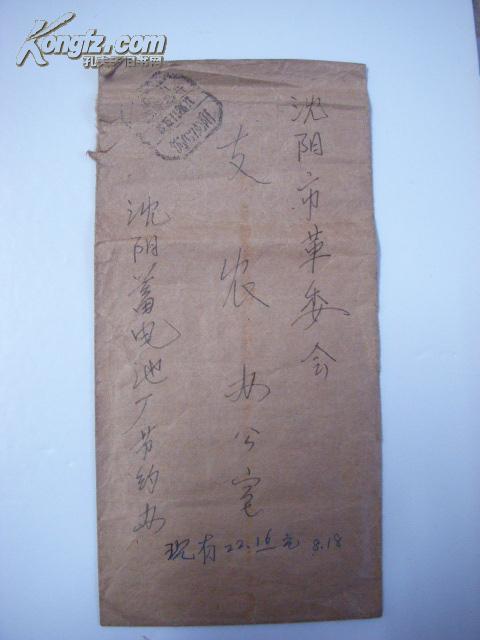 Kongfz.com
孔夫子旧书网
沈阳市革委会
支农办公室
沈阳蓄电池厂节约办
现有22.16元 8.18